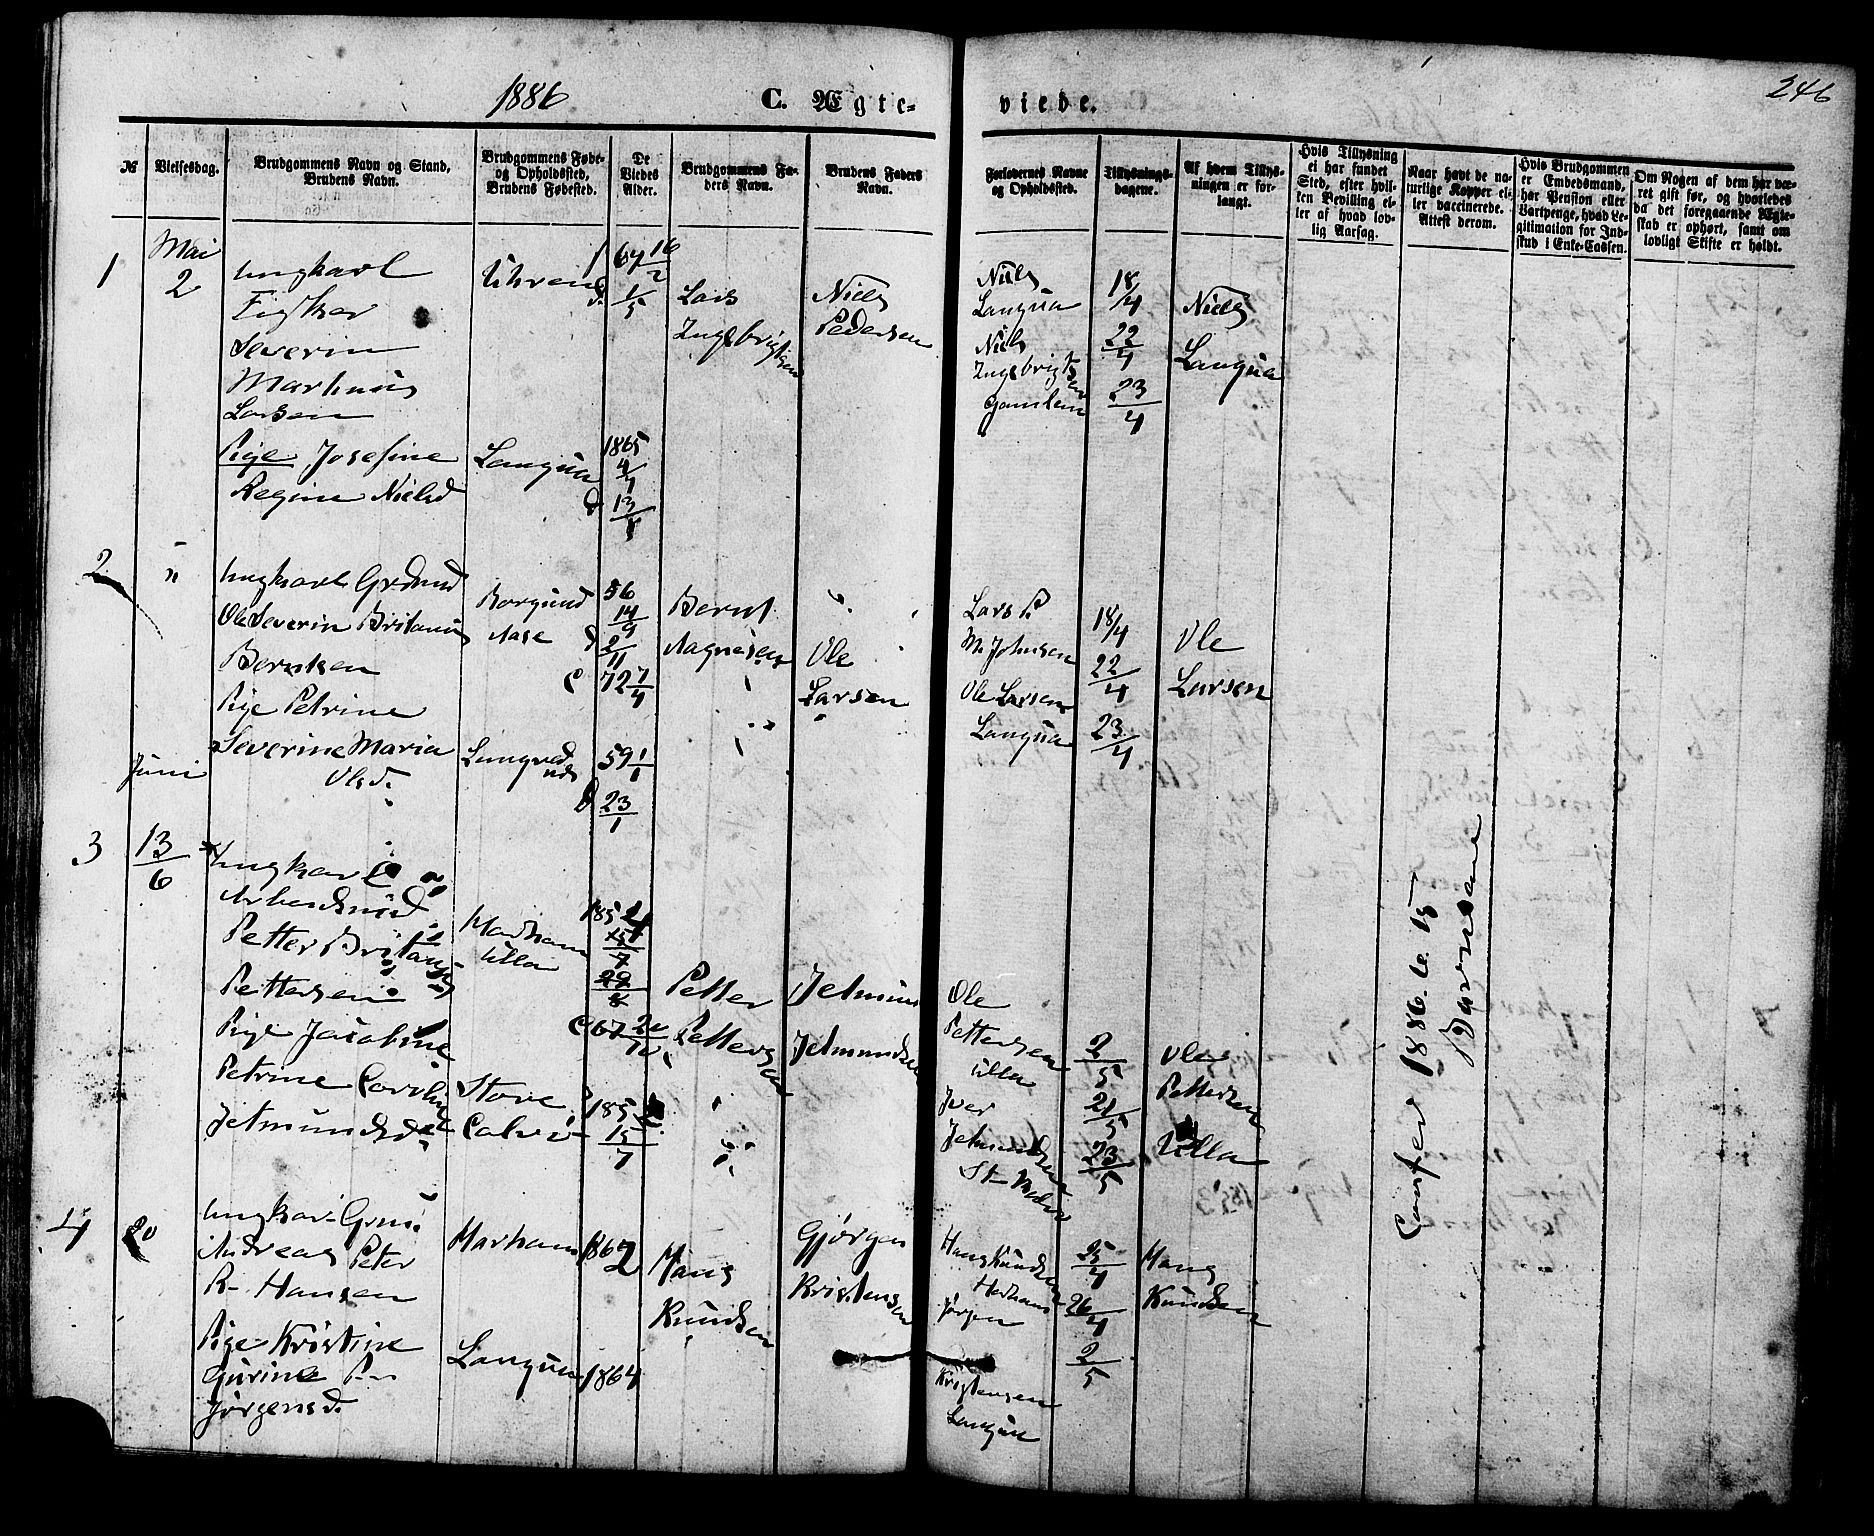 1886
C. Ægte-
viede.
246
№
Vielsesdag.
Brudgommens Navn og Stand,
Brudens Navn.
Brudgommens Føde-
og Opholdssted,
Brudens Fødested.
De
Viedes
Alder.
Brudgommens Fa-
ders Navn.
Brudens Faders
Navn.
Forlovernes Navne
og Opholdssted.
Tillysnings-
dagene.
Af hvem Tillys-
ningen er for-
langt.
Hvis Tillysning
ei har fundet
Sted, efter hvil-
ken Bevilling el-
ler af hvad lov-
lig Aarsag.
Naar havt de na-
turlige Kopper el-
ler vaccinerede.
Attest derom.
Hvis Brudgommen
er Embedsmand,
har Pension eller
Vartpenge, hvad Le-
gitimation for Ind-
skud i Enke-Cassen.
Om Nogen af dem har væ-
ret gift før, og hvorledes
da det foregaaende Ægte-
skab er ophørt, samt om
lovligt Skifte er holdt.
1
Mai
2
Ungkarl
Fisker
Severin
Martinus
Larsen
Pige Josefine
Regine Nielsd
Langua
64 16/2
1/5
1865
4/4
13/
Lars
Ingebrigtsen
Niels
Pedersen
Niels
Langua
Niels
Ingebrigtsen
Gamlem
18/4
22/4
23/4
Niels
Langua
2
"
Ungkarl Grdmd
Ole Severin Britanus
Berntsen
Pige Petrine
Severine Maria
Olsd.
Borgund
Aase
56
14/9
2/11
72 7/4
59 1/1
23/1
Bernt
Aagnesen
Ole
Larsen
Lars P.
M. Johnsen
Ole Larsen
Langua
18/4
22/4
23/4
Ole
Larsen
Juni
3
13/6
Ungkarl
Arbeidsmd
Petter Britanus
Pettersen
Pige Jacobine
Petrine
Jetmundsd
Harham
Ulla
Store
Calvø
1852
15/7
Petter
Pettersen
Jetmund
Jetmundsen
Ole
Pettersen
Ulla
Iver
Jetmundsen
2/5
21/5
23/5
Ole
Pettersen
Ulla
4
20
Ungkar Grmd
Andreas Peter
R- Hansen
Pige Kristine
Gurine P-
Jørgensd.
Harham
Langua
1862
1864
Hans
Knudsen
Gjørgen
Kristensen
Hans Knudsen
Harham
Jørgen
Kristensen
Langua
25/4
26/4
2/5
Hans
Knudsen
1886